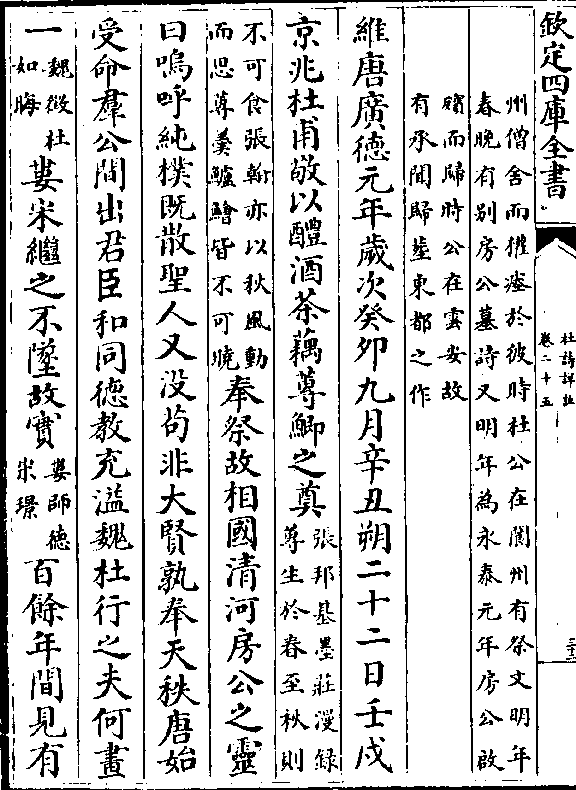 欽定四庫全書
杜詩詳註
卷二十五
州僧舍而權瘞於彼時杜公在閬州有祭文明年
春晚有别房公墓詩又明年為永泰元年房公啟
殯而歸時公在雲安故
有承聞歸塟東都之作
維唐廣德元年歲次癸卯九月辛丑朔二十二日壬戌
京兆杜甫敬以醴酒茶藕蓴鯽之奠張邦基墨莊漫録
蓴生於春至秋則
不可食張翰亦以秋風動
而思蓴羮鱸鱠皆不可曉奉祭故相國清河房公之靈
曰嗚呼純樸既散聖人又没茍非大賢孰奉天秩唐始
受命羣公間出君臣和同德教充溢魏杜行之夫何畫
一魏徵杜
如晦婁宋繼之不墜故實婁師德
宋璟百餘年間見有